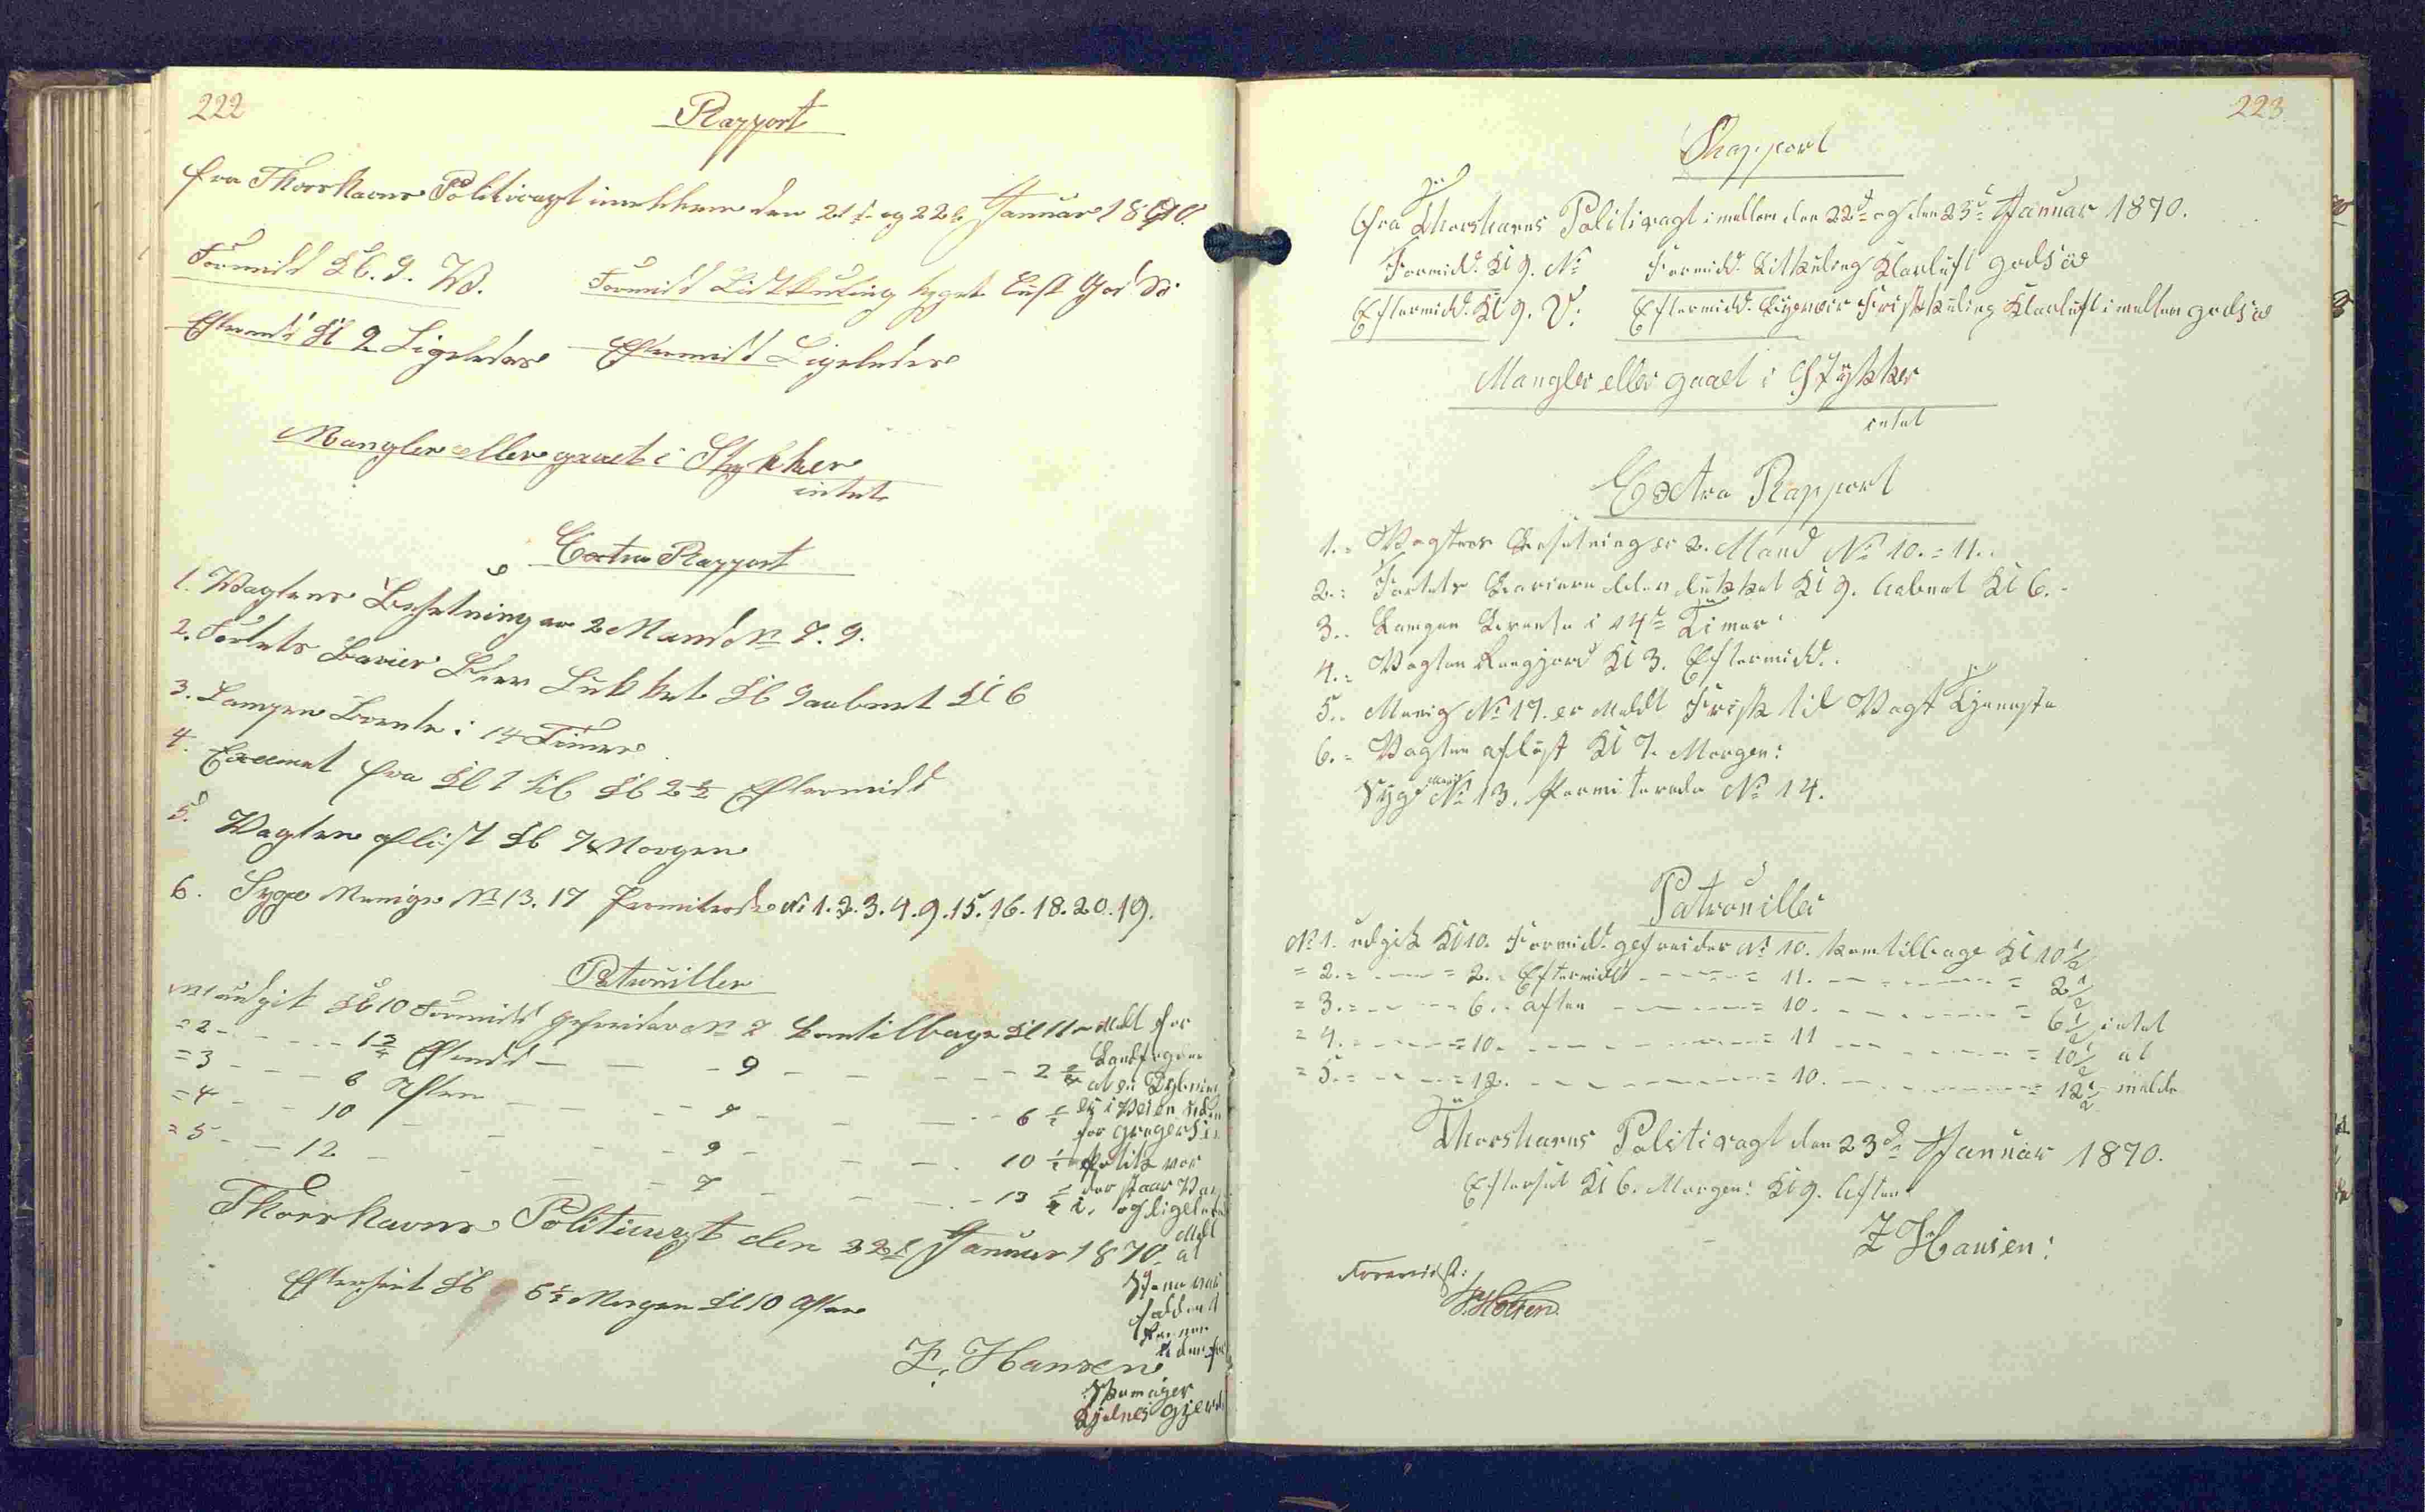 222
Rapport
fra Thorshavns Politivagt imellem den 21d og 22d Januar 1870.
Formidd Kl. 9. W. Formidd Lidt Kuling byget Luft God Sø
Eftermd Kl 9 Ligeledes Eftermidd Ligeledes
Mangler eller gaaet i Stykker
intet
Extra Rapport
1. Vagtens Besætning er 2 Mand No 7. 9.
2. Fortets Barier blev Lukket Kl 9 aabnet Kl 6
3. Lampen Brente i 14 Timer
4. Excerset fra Kl 1 til Kl 2½ Eftermidd
5. Vagten afløst Kl 7 Morgen
6. Syge Menige No 13. 17 Permiterede No 1. 2. 3. 4. 9. 15. 16. 18. 20. 19.
Patrouiller
No 1 udgik Kl 10 Formidd gefreider No 7 kom tilbage Kl 11 Meldt for
= 2 - - - - 1¾ Eftermd - - - 9 - - - - 2¾ Landfogden
at en
= 3 - - - 6 Aften - - - 7 - - - 6½ er i Veien neden
for gregersens
= 4 - - 10 - - - 9 - - - 10½ Politi var
der staar Van
= 5 - - 12 - - - 7 - - - 12½ i, ogligeledes
Meldt
Thorshavns Politivagt den 22d Januar 1870. at
Efterseet Kl 6½ Morgen Kl 10 Aften
Stene var
falden
fra
neden for
Z. Hansen
Skomager
Kjelnes gjerde
223.
Rapport
fra Thorshavns Politivagt imellem den 22d og den 23d Januar 1870.
Formidd. Kl 9. No Formidd. Lit Kuling Klarluft godsø
Eftermidd. Kl 9. V: Eftermidd. Bygevær Friskkuling Klarluft imellem godsø
Mangler eller gaaet i Stykker
intet
Extra Rapport
1. Vagtens Besætning er 2. Mand No 10. = 11.
2. Fortets Bariere blev lukket Kl 9. aabnet Kl 6.
3. Lampen Brente i 14 Timer
4. Vagten Rengjord Kl 3. Eftermidd.
5. Menig No 17. er Meldt Frisk til Vagt Tjeneste
6. Vagten afløst Kl 7. Morgen:
Syge Menig No 13. Permiterede No 14.
Patrouiller
No 1. udgik Kl 10. Formidd. gefreider No 10. kom tilbage Kl 10½
= 2. = - - - = 2. Eftermidd - - - = 11. - - - = 2½
= 3. = - - - 6. aften - - - = 10. - - - = 6½ intet
= 4. - - - = 10. - - - = 11 - - - = 10½ at
= 5. = - - - = 12. - - - = 10. - - - = 12½ melde
Thorshavns Politivagt den 23d Januar 1870.
Efterset Kl 6. Morgen: Kl 9. Aften
Z Hansen:
Forevist: